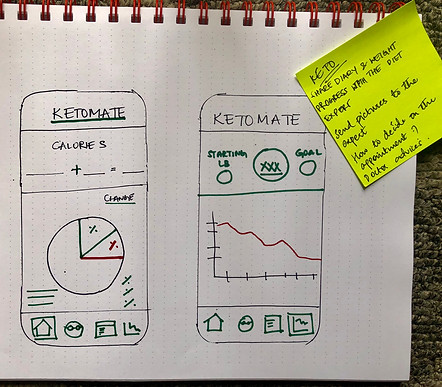 KETOMATE
CALORIES
+ =
CHANGE
%
%
%
%
%
KETOMATE
STARTING
LB
XXX
GOAL
KETO
SHARE DIARY & WEIGHT
PROGRESS WITH THE DIET
EXPERT
Send pictures to the
expert
How to decide on the
appointment ?
advices